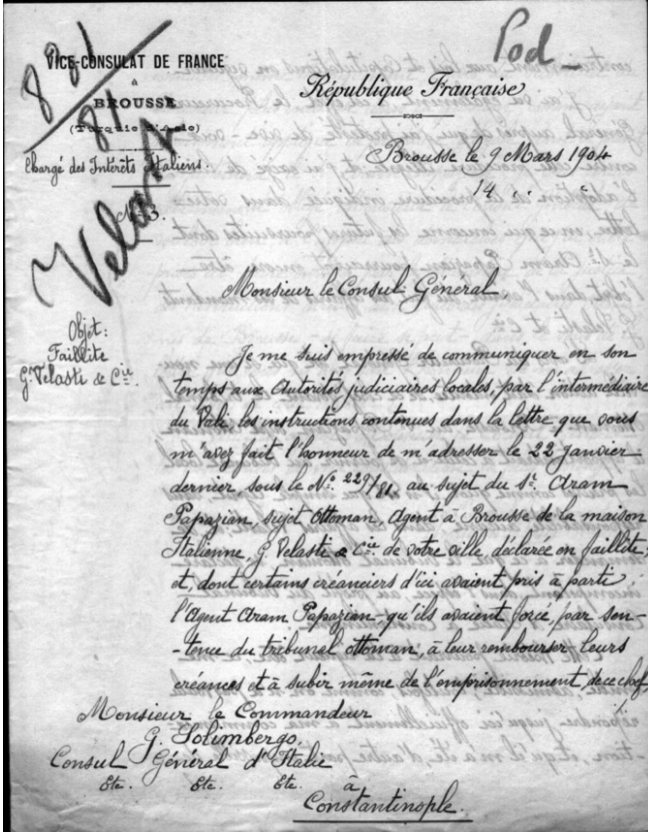 881
81
Velasti
Pod
VICE-CONSULAT DE FRANCE
à
BROUSSE
(Turquie d'Asie)
Chargé des Intérêts Italiens.
République Française
Brousse le 9 Mars 1904
14
Monsieur le Consul Général,
Objet:
Faillite
G. Velasti & Cie.
Je me suis empressé de communiquer en son
temps aux Autorités judiciaires locales, par l'intermédiaire
du Vali, les instructions contenues dans la lettre que vous
m'avez fait l'honneur de m'adresser le 22 janvier
dernier, sous le No. 229/81, au sujet du sr. Aram
Papazian, sujet Ottoman, Agent à Brousse de la maison
Italienne, G. Velasti & Cie. de votre ville, déclarée en faillite,
et, dont certains créanciers d'ici avaient pris à partie
l'Agent Aram Papazian qu'ils avaient forcé, par sen-
-tence du tribunal ottoman, à leur rembourser leurs
créances et à subir même de l'emprisonnement, de ce chef.
Monsieur le Commandeur
G. Solimbergo,
Consul Général d'Italie
Etc. Etc. Etc.
à
Constantinople.